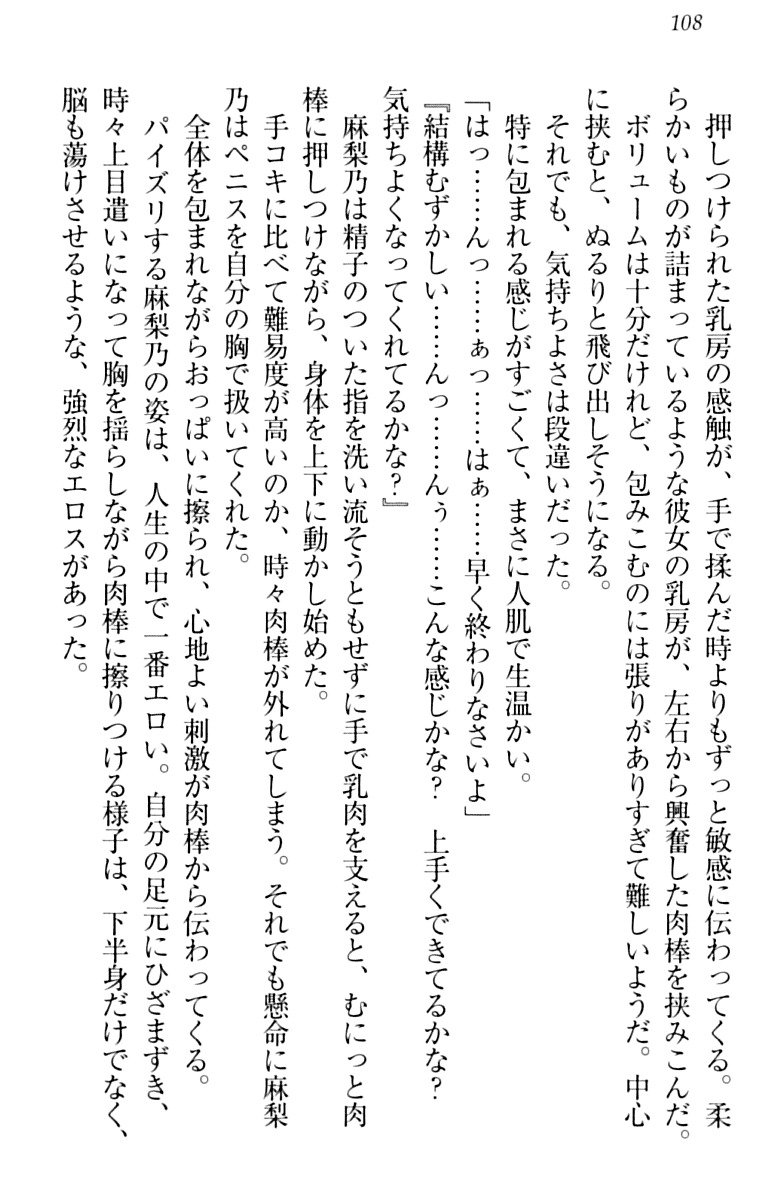 108
押しつけられた乳房の感触が、手で揉んだ時よりもずっと敏感に伝わってくる。柔
らかいものが詰まっているような彼女の乳房が、左右から興奮した肉棒を挟みこんだ。
ボリュームは十分だけれど、包みこむのには張りがありすぎて難しいようだ。中心
に挟むと、ぬるりと飛び出しそうになる。
それでも、気持ちよさは段違いだった。
特に包まれる感じがすごくて、まさに人肌で生温かい。
「はっ……んっ……ぁっ……はぁ……早く終わりなさいよ」
『結構むずかしい……んっ……んぅ……こんな感じかな？　上手くできてるかな？
気持ちよくなってくれてるかな？』
麻梨乃は精子のついた指を洗い流そうともせずに手で乳肉を支えると、むにっと肉
棒に押しつけながら、身体を上下に動かし始めた。
手コキに比べて難易度が高いのか、時々肉棒が外れてしまう。それでも懸命に麻梨
乃はペニスを自分の胸で扱いてくれた。
全体を包まれながらおっぱいに擦られ、心地よい刺激が肉棒から伝わってくる。
パイズリする麻梨乃の姿は、人生の中で一番エロい。自分の足元にひざまずき、
時々上目遣いになって胸を揺らしながら肉棒に擦りつける様子は、下半身だけでなく、
脳も蕩けさせるような、強烈なエロスがあった。